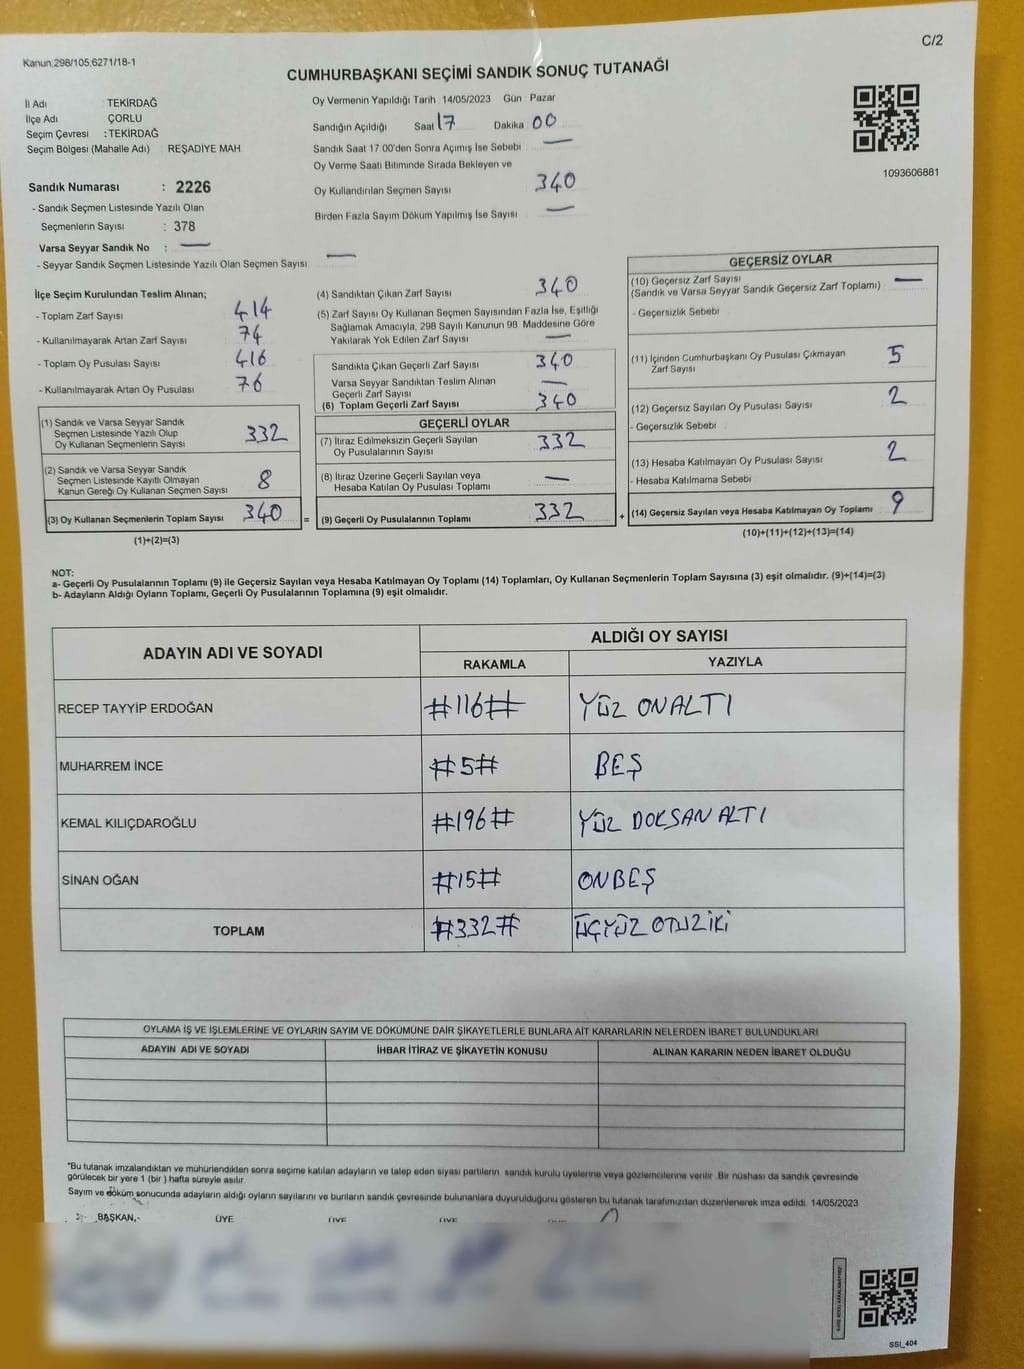 C/2
Kanun;298/105,6271/18-1
CUMHURBAŞKANI SEÇİMİ SANDIK SONUÇ TUTANAĞI
İl Adı TEKİRDAĞ
İlçe Adı ÇORLU
Seçim Çevresi : TEKİRDAĞ
Seçim Bölgesi (Mahalle Adı) REŞADİYE MAH
Oy Vermenin Yapıldığı Tarih 14/05/2023 Gün Pazar
Sandığın Açıldığı Saat 17 Dakika 00
Sandık Saat 17 00'den Sonra Açımış İse Sebebi —
Oy Verme Saati Bitiminde Sırada Bekleyen ve
Oy Kullandırılan Seçmen Sayısı 340
Birden Fazla Sayım Döküm Yapılmış İse Sayısı —
1093606881
Sandık Numarası : 2226
- Sandık Seçmen Listesinde Yazılı Olan
Seçmenlerin Sayısı : 378
Varsa Seyyar Sandık No : —
- Seyyar Sandık Seçmen Listesinde Yazılı Olan Seçmen Sayısı —
İlçe Seçim Kurulundan Teslim Alınan;
- Toplam Zarf Sayısı 414
- Kullanılmayarak Artan Zarf Sayısı 74
- Toplam Oy Pusulası Sayısı 416
- Kullanılmayarak Artan Oy Pusulası 76
(1) Sandık ve Varsa Seyyar Sandık
Seçmen Listesinde Yazılı Olup
Oy Kullanan Seçmenlerin Sayısı 332
(2) Sandık ve Varsa Seyyar Sandık
Seçmen Listesinde Kayıtlı Olmayan
Kanun Gereği Oy Kullanan Seçmen Sayısı 8
(3) Oy Kullanan Seçmenlerin Toplam Sayısı 340 =
(1)+(2)=(3)
(4) Sandıktan Çıkan Zarf Sayısı 340
(5) Zarf Sayısı Oy Kullanan Seçmen Sayısından Fazla İse, Eşitliği
Sağlamak Amacıyla, 298 Sayılı Kanunun 98. Maddesine Göre
Yakılarak Yok Edilen Zarf Sayısı —
Sandıkta Çıkan Geçerli Zarf Sayısı 340
Varsa Seyyar Sandıktan Teslim Alınan
Geçerli Zarf Sayısı —
(6) Toplam Geçerli Zarf Sayısı 340
GEÇERLİ OYLAR
(7) İtiraz Edilmeksizin Geçerli Sayılan
Oy Pusulalarının Sayısı 332
(8) İtiraz Üzerine Geçerli Sayılan veya
Hesaba Katılan Oy Pusulası Toplamı —
(9) Geçerli Oy Pusulalarının Toplamı 332 +
GEÇERSİZ OYLAR
(10) Geçersiz Zarf Sayısı —
(Sandık ve Varsa Seyyar Sandık Geçersiz Zarf Toplamı)
- Geçersizlik Sebebi
(11) İçinden Cumhurbaşkanı Oy Pusulası Çıkmayan
Zarf Sayısı 5
(12) Geçersiz Sayılan Oy Pusulası Sayısı 2
- Geçersizlik Sebebi
(13) Hesaba Katılmayan Oy Pusulası Sayısı 2
- Hesaba Katılmama Sebebi
(14) Geçersiz Sayılan veya Hesaba Katılmayan Oy Toplamı 9
(10)+(11)+(12)+(13)=(14)
NOT:
a- Geçerli Oy Pusulalarının Toplamı (9) ile Geçersiz Sayılan veya Hesaba Katılmayan Oy Toplamı (14) Toplamları, Oy Kullanan Seçmenlerin Toplam Sayısına (3) eşit olmalıdır. (9)+(14)=(3)
b- Adayların Aldığı Oyların Toplamı, Geçerli Oy Pusulalarının Toplamına (9) eşit olmalıdır.
ADAYIN ADI VE SOYADI ALDIĞI OY SAYISI
RAKAMLA YAZIYLA
RECEP TAYYİP ERDOĞAN #116# YÜZ ONALTI
MUHARREM İNCE #5# BEŞ
KEMAL KILIÇDAROĞLU #196# YÜZ DOKSAN ALTI
SİNAN OĞAN #15# ONBEŞ
TOPLAM #332# ÜÇYÜZ OTUZİKİ
OYLAMA İŞ VE İŞLEMLERİNE VE OYLARIN SAYIM VE DÖKÜMÜNE DAİR ŞİKAYETLERLE BUNLARA AİT KARARLARIN NELERDEN İBARET BULUNDUKLARI
ADAYIN ADI VE SOYADI İHBAR İTİRAZ VE ŞİKAYETİN KONUSU ALINAN KARARIN NEDEN İBARET OLDUĞU
*Bu tutanak imzalandıktan ve mühürlendikten sonra seçime katılan adayların ve talep eden siyasi partilerin sandık kurulu üyelerine veya gözlemcilerine verilir. Bir nüshası da sandık çevresinde
görülecek bir yere 1 (bir ) hafta süreyle asılır.
Sayım ve döküm sonucunda adayların aldığı oyların sayılarını ve bunların sandık çevresinde bulunanlara duyurulduğunu gösteren bu tutanak tarafımızdan düzenlenerek imza edildi. 14/05/2023
BAŞKAN ÜYE ÜYE ÜYE
SSI_404